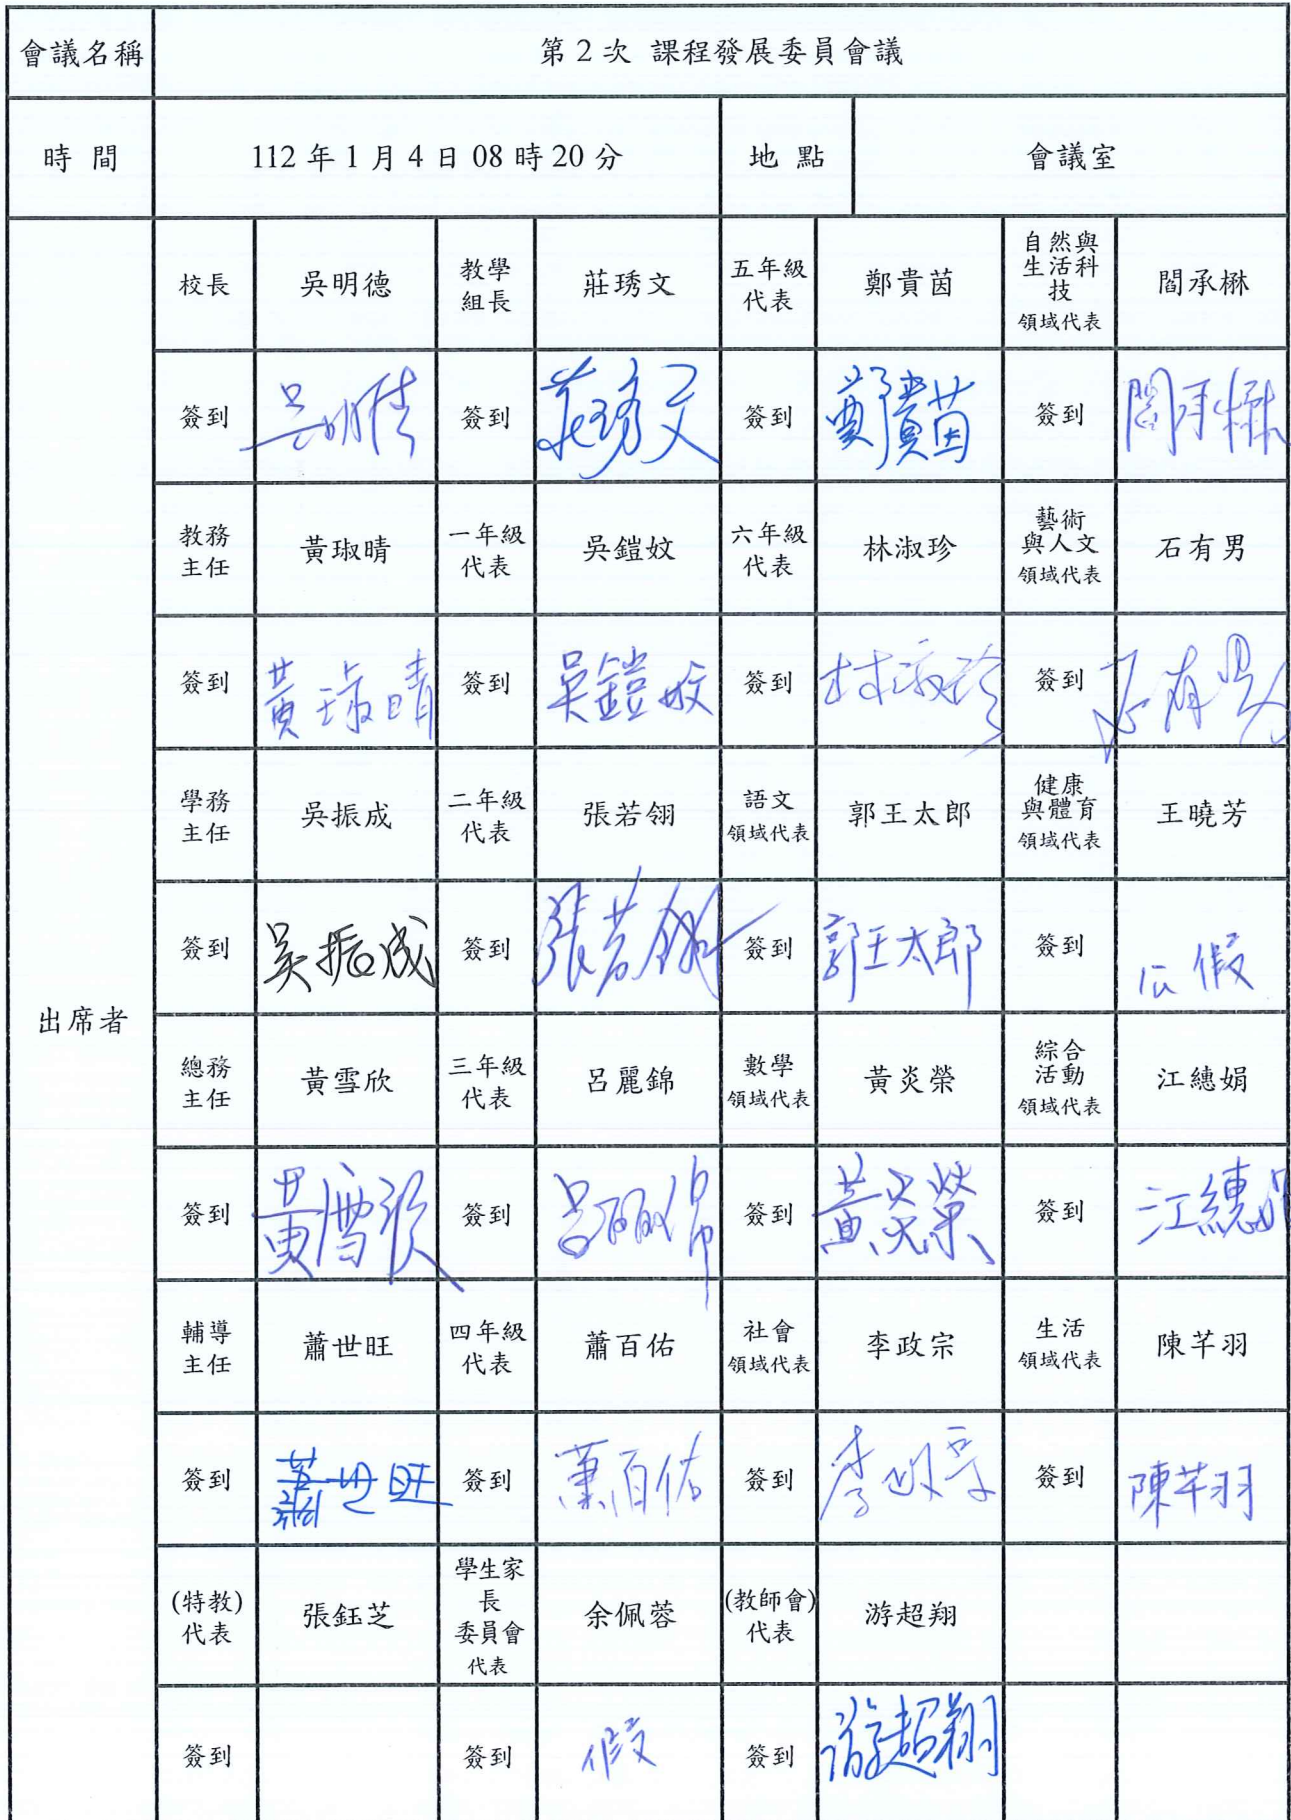 會議名稱 第2次 課程發展委員會議
時 間 112年1月4日08時20分 地 點 會議室
出席者
校長 吳明德 教學組長 莊琇文 五年級代表 鄭貴茵 自然與生活科技領域代表 閻承楙
簽到 吳明德 簽到 莊琇文 簽到 鄭貴茵 簽到 閻承楙
教務主任 黃琡晴 一年級代表 吳鎧妏 六年級代表 林淑珍 藝術與人文領域代表 石有男
簽到 黃琡晴 簽到 吳鎧妏 簽到 林淑珍 簽到 石有男
學務主任 吳振成 二年級代表 張若翎 語文領域代表 郭王太郎 健康與體育領域代表 王曉芳
簽到 吳振成 簽到 張若翎 簽到 郭王太郎 簽到 公假
總務主任 黃雪欣 三年級代表 呂麗錦 數學領域代表 黃炎榮 綜合活動領域代表 江繐娟
簽到 黃雪欣 簽到 呂麗錦 簽到 黃炎榮 簽到 江繐娟
輔導主任 蕭世旺 四年級代表 蕭百佑 社會領域代表 李政宗 生活領域代表 陳芊羽
簽到 蕭世旺 簽到 蕭百佑 簽到 李政宗 簽到 陳芊羽
(特教)代表 張鈺芝 學生家長委員會代表 余佩蓉 (教師會)代表 游超翔
簽到 簽到 假 簽到 游超翔